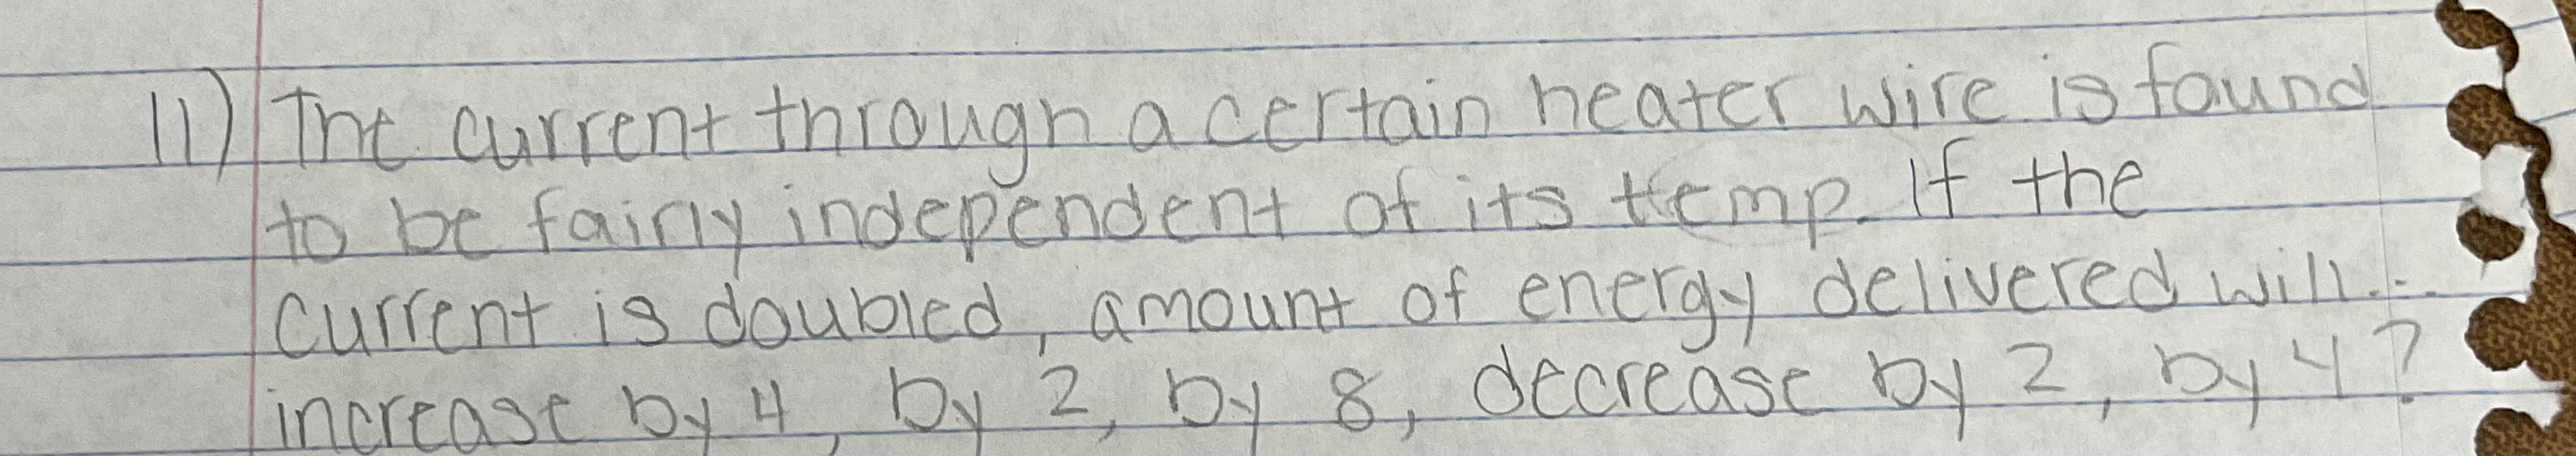 11) The current through a certain heater wire is found
to be fairly independent of its temp. If the
current is doubled, amount of energy delivered will...
increase by 4, by 2, by 8, decrease by 2, by 4?